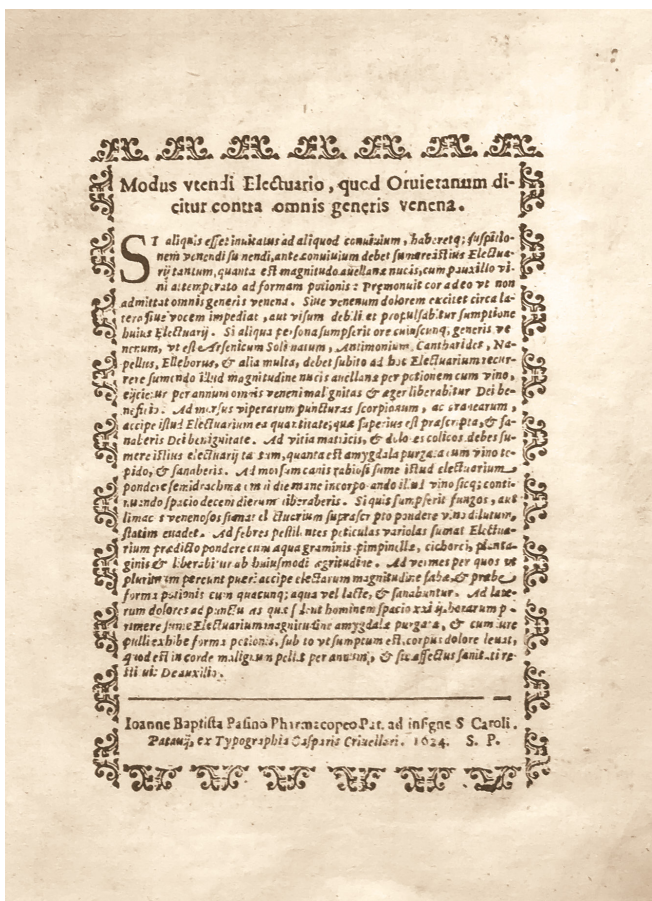 Modus vtendi Electuario, quod Oruietanum di-
citur contra omnis generis venena.
SI aliquis esset inuitatus ad aliquod conuiuium, haberetq; suspitio-
nem venendi sumendi, ante conuiuium debet sumere istius Electua-
rij tantum, quanta est magnitudo auellanæ nucis, cum pauxillo vi-
ni attemperato ad formam potionis: Præmonuit cor adeo vt non
admittat omnis generis venena. Siue venenum dolorem excitet circa la-
tero siue vocem impediat, aut visum debili et propulsabitur sumptione
huius Electuarij. Si aliqua persona sumpserit ore cuiuscunq; generis ve
nenum, vt est Arsenicum Solimatum, Antimonium, Cantharides, Na-
pellus, Elleborus, & alia multa, debet subito ad hoc Electuarium recur-
rere sumendo illud magnitudine nucis auellanæ per potionem cum vino,
eijcietur per annum omnis veneni malignitas & æger liberabitur Dei be-
neficio. Ad morsus viperarum puncturas scorpionum, ac aranearum,
accipe istud Electuarium ea quantitate, qua superius est præscripta, & sa-
naberis Dei benignitate. Ad vitia matricis, & dolores colicos debes su-
mere istius electuarij tantum, quanta est amygdala purgata cum vino te-
pido, & sanaberis. Ad morsum canis rabiosi sume istud electuorium
pondere semidrachma in die mane incorporando illud vino sicq; conti-
nuando spacio decem dierum liberaberis. Si quis sumpserit fungos, aut
limac s venenosos sumat el ctuerium suprascr pto pondere vino dilutum,
statim euadet. Ad febres pestilentes peticulas variolas sumat Electua-
rium prædicto pondere cum aqua graminis pimpinellæ, cichorei, planta-
ginis & liberabitur ab huiusmodi ægritudine. Ad vermes per quos vt
plurimum pereunt pueri accipe electarum magnitudine fabæ, & præbe
forma potionis cum quacunq; aqua vel lacte, & sanabuntur. Ad late-
rum dolores ad punctu as quæ s lent hominem spacio xxiiij. horarum p-
rimere sume Electuarium magnitudine amygdalæ purgatæ, & cum iure
pulli exhibe forma potionis, subito vt sumptum est, corpus dolore leuat,
quod est in corde malignum pellit per annum, & sic affectus sanitati re-
stituit Dei auxilio.
Ioanne Baptista Pasino Pharmacopeo Pat. ad insigne S Caroli.
Patauij, ex Typographia Gasparis Criuellari. 1624. S. P.